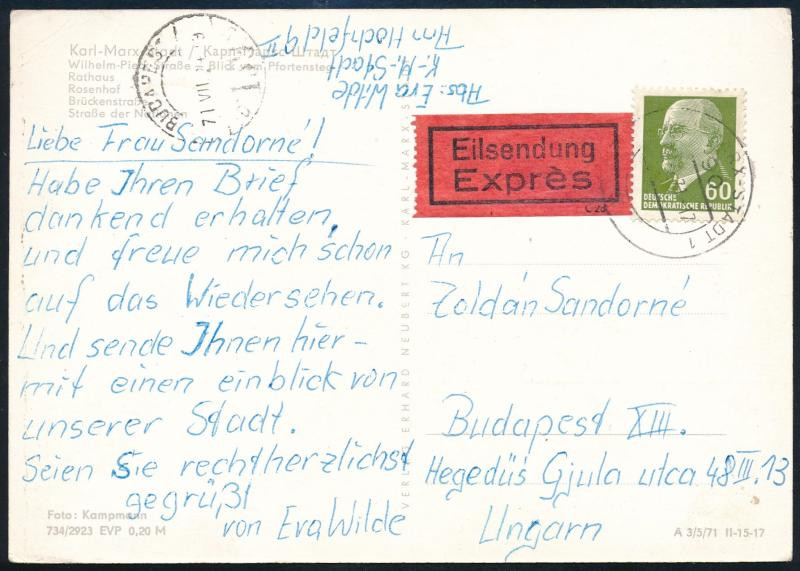 Karl-Marx-Stadt / Карл-Маркс-Штадт
Wilhelm-Pieck-Straße Blick vom Pfortensteg
Rathaus
Rosenhof
Brückenstraße
Straße der Nationen
BUDAPEST
71 VII
Abs: Eva Wilde
K.-M.-Stadt
Am Hochfeld 9
Liebe Frau Sandorné!
Habe Ihren Brief
dankend erhalten,
und freue mich schon
auf das Wiedersehen.
Und sende Ihnen hier-
mit einen einblick von
unserer Stadt.
Seien Sie rechtherzlichst
gegrüßt
von Eva Wilde
Foto: Kampmann
734/2923 EVP 0,20 M
VERLAG ERHARD NEUBERT KG · KARL-MARX-S
Eilsendung
Exprès
C 28
60
DEUTSCHE
DEMOKRATISCHE REPUBLIK
X-STADT 1
An
Zoldán Sandorné
Budapest XIII.
Hegedüs Gjula utca 48 III. 13
Ungarn
A 3/5/71 II-15-17